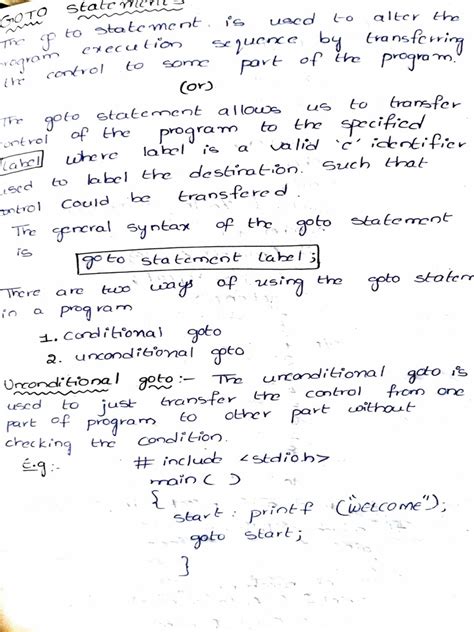 GOTO statements
The go to statement is used to alter the
rogram execution sequence by transferring
the control to some part of the program.
(or)
The goto statement allows us to transfer
ontrol of the program to the specified
Label where label is a valid 'c' identifier
used to label the destiration. such that
ontrol could be transfered.
The general syntax of the goto statement
is
goto statement label;
There are two ways of using the goto statem
in a program
1. conditional goto
2. unconditional goto
Unconditional goto:- The unconditional goto is
used to just transfer the control from one
part of program to other part without
checking the condition.
E.g:- # include <stdio.h>
main( )
{
start : printf ("WELCOME");
goto start;
}